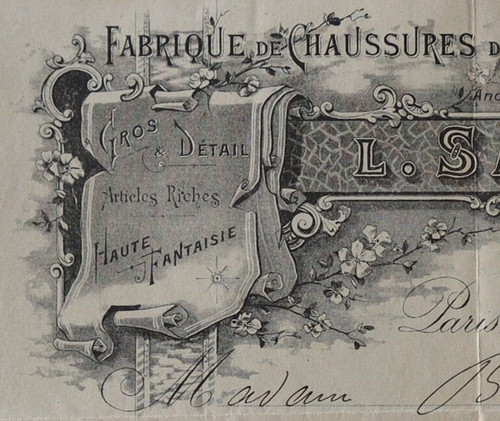 FABRIQUE DE CHAUSSURES D
ANC
GROS
& DÉTAIL
L. SA
Articles Riches
HAUTE
FANTAISIE
Paris
Madam B